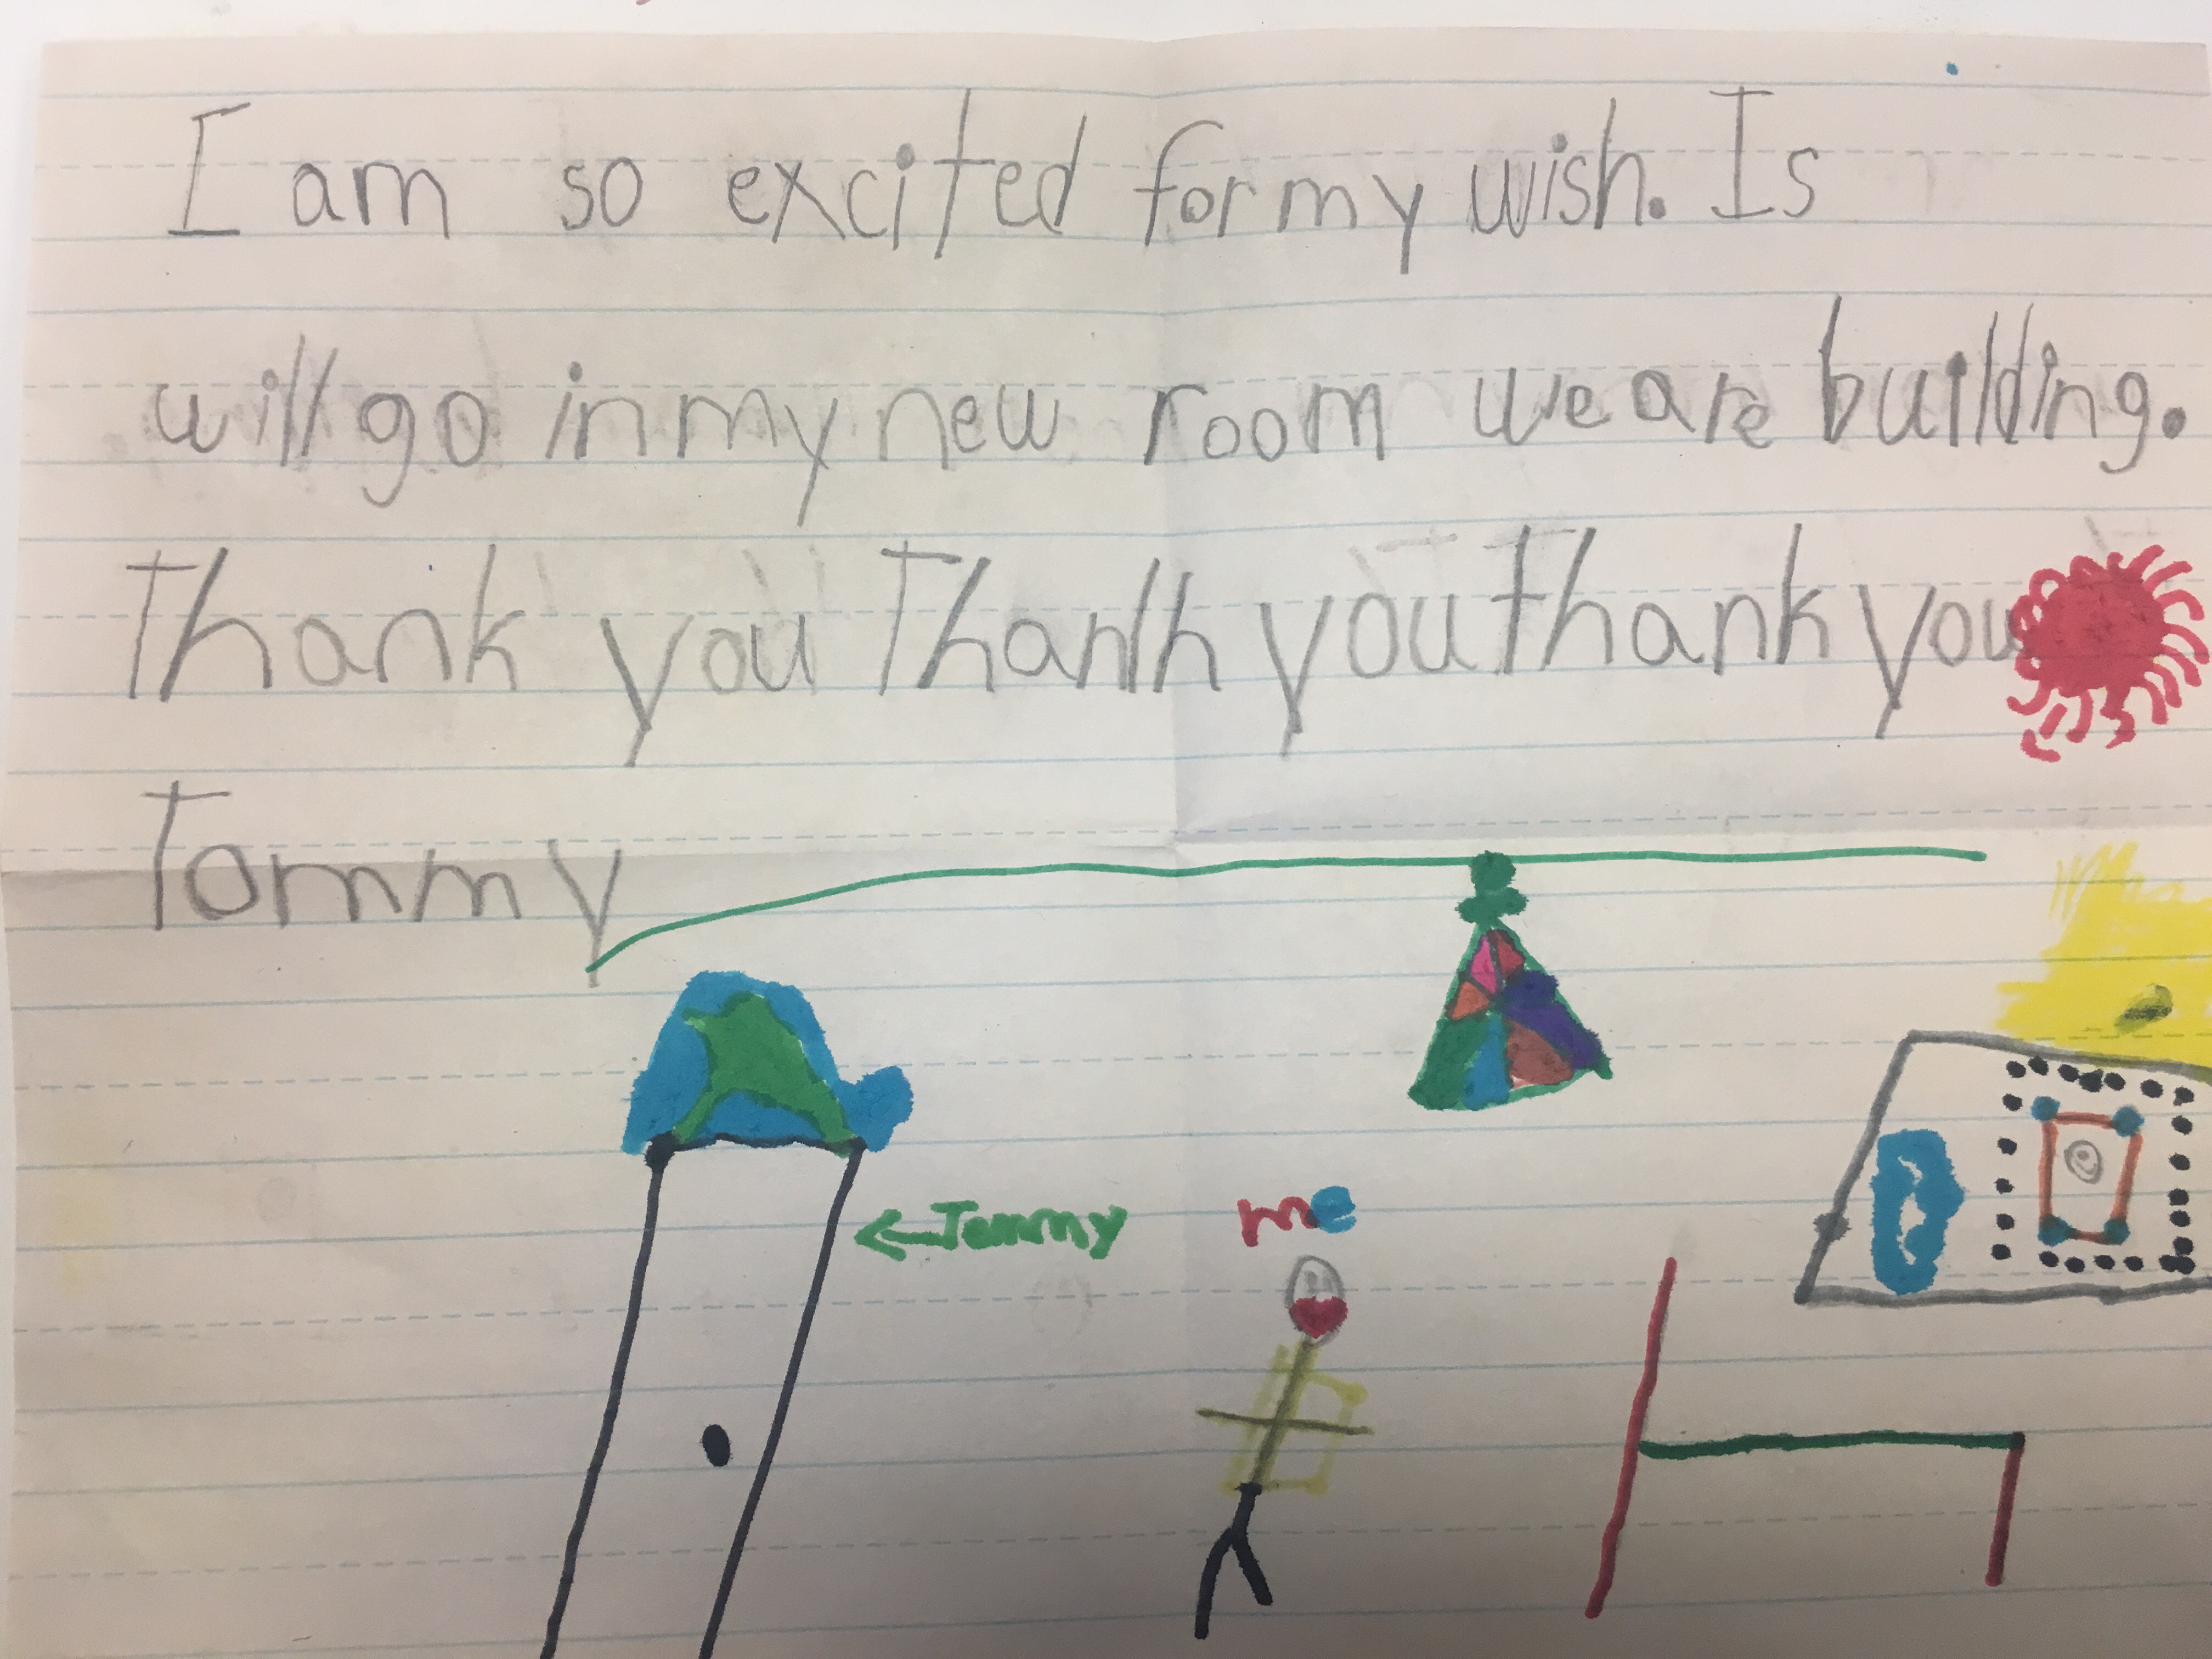 I am so excited for my wish. Is
will go in my new room we are building.
Thank you Thank you thank you
Tommy
←Tommy
me